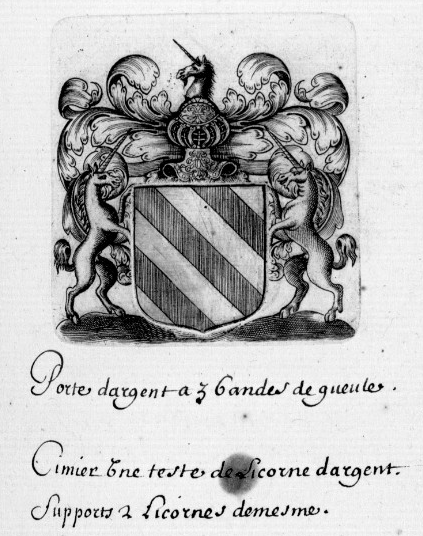 Porte dargent a 3 bandes de gueule.
Cimier Une teste de Licorne dargent.
Supports 2 Licornes demesme.